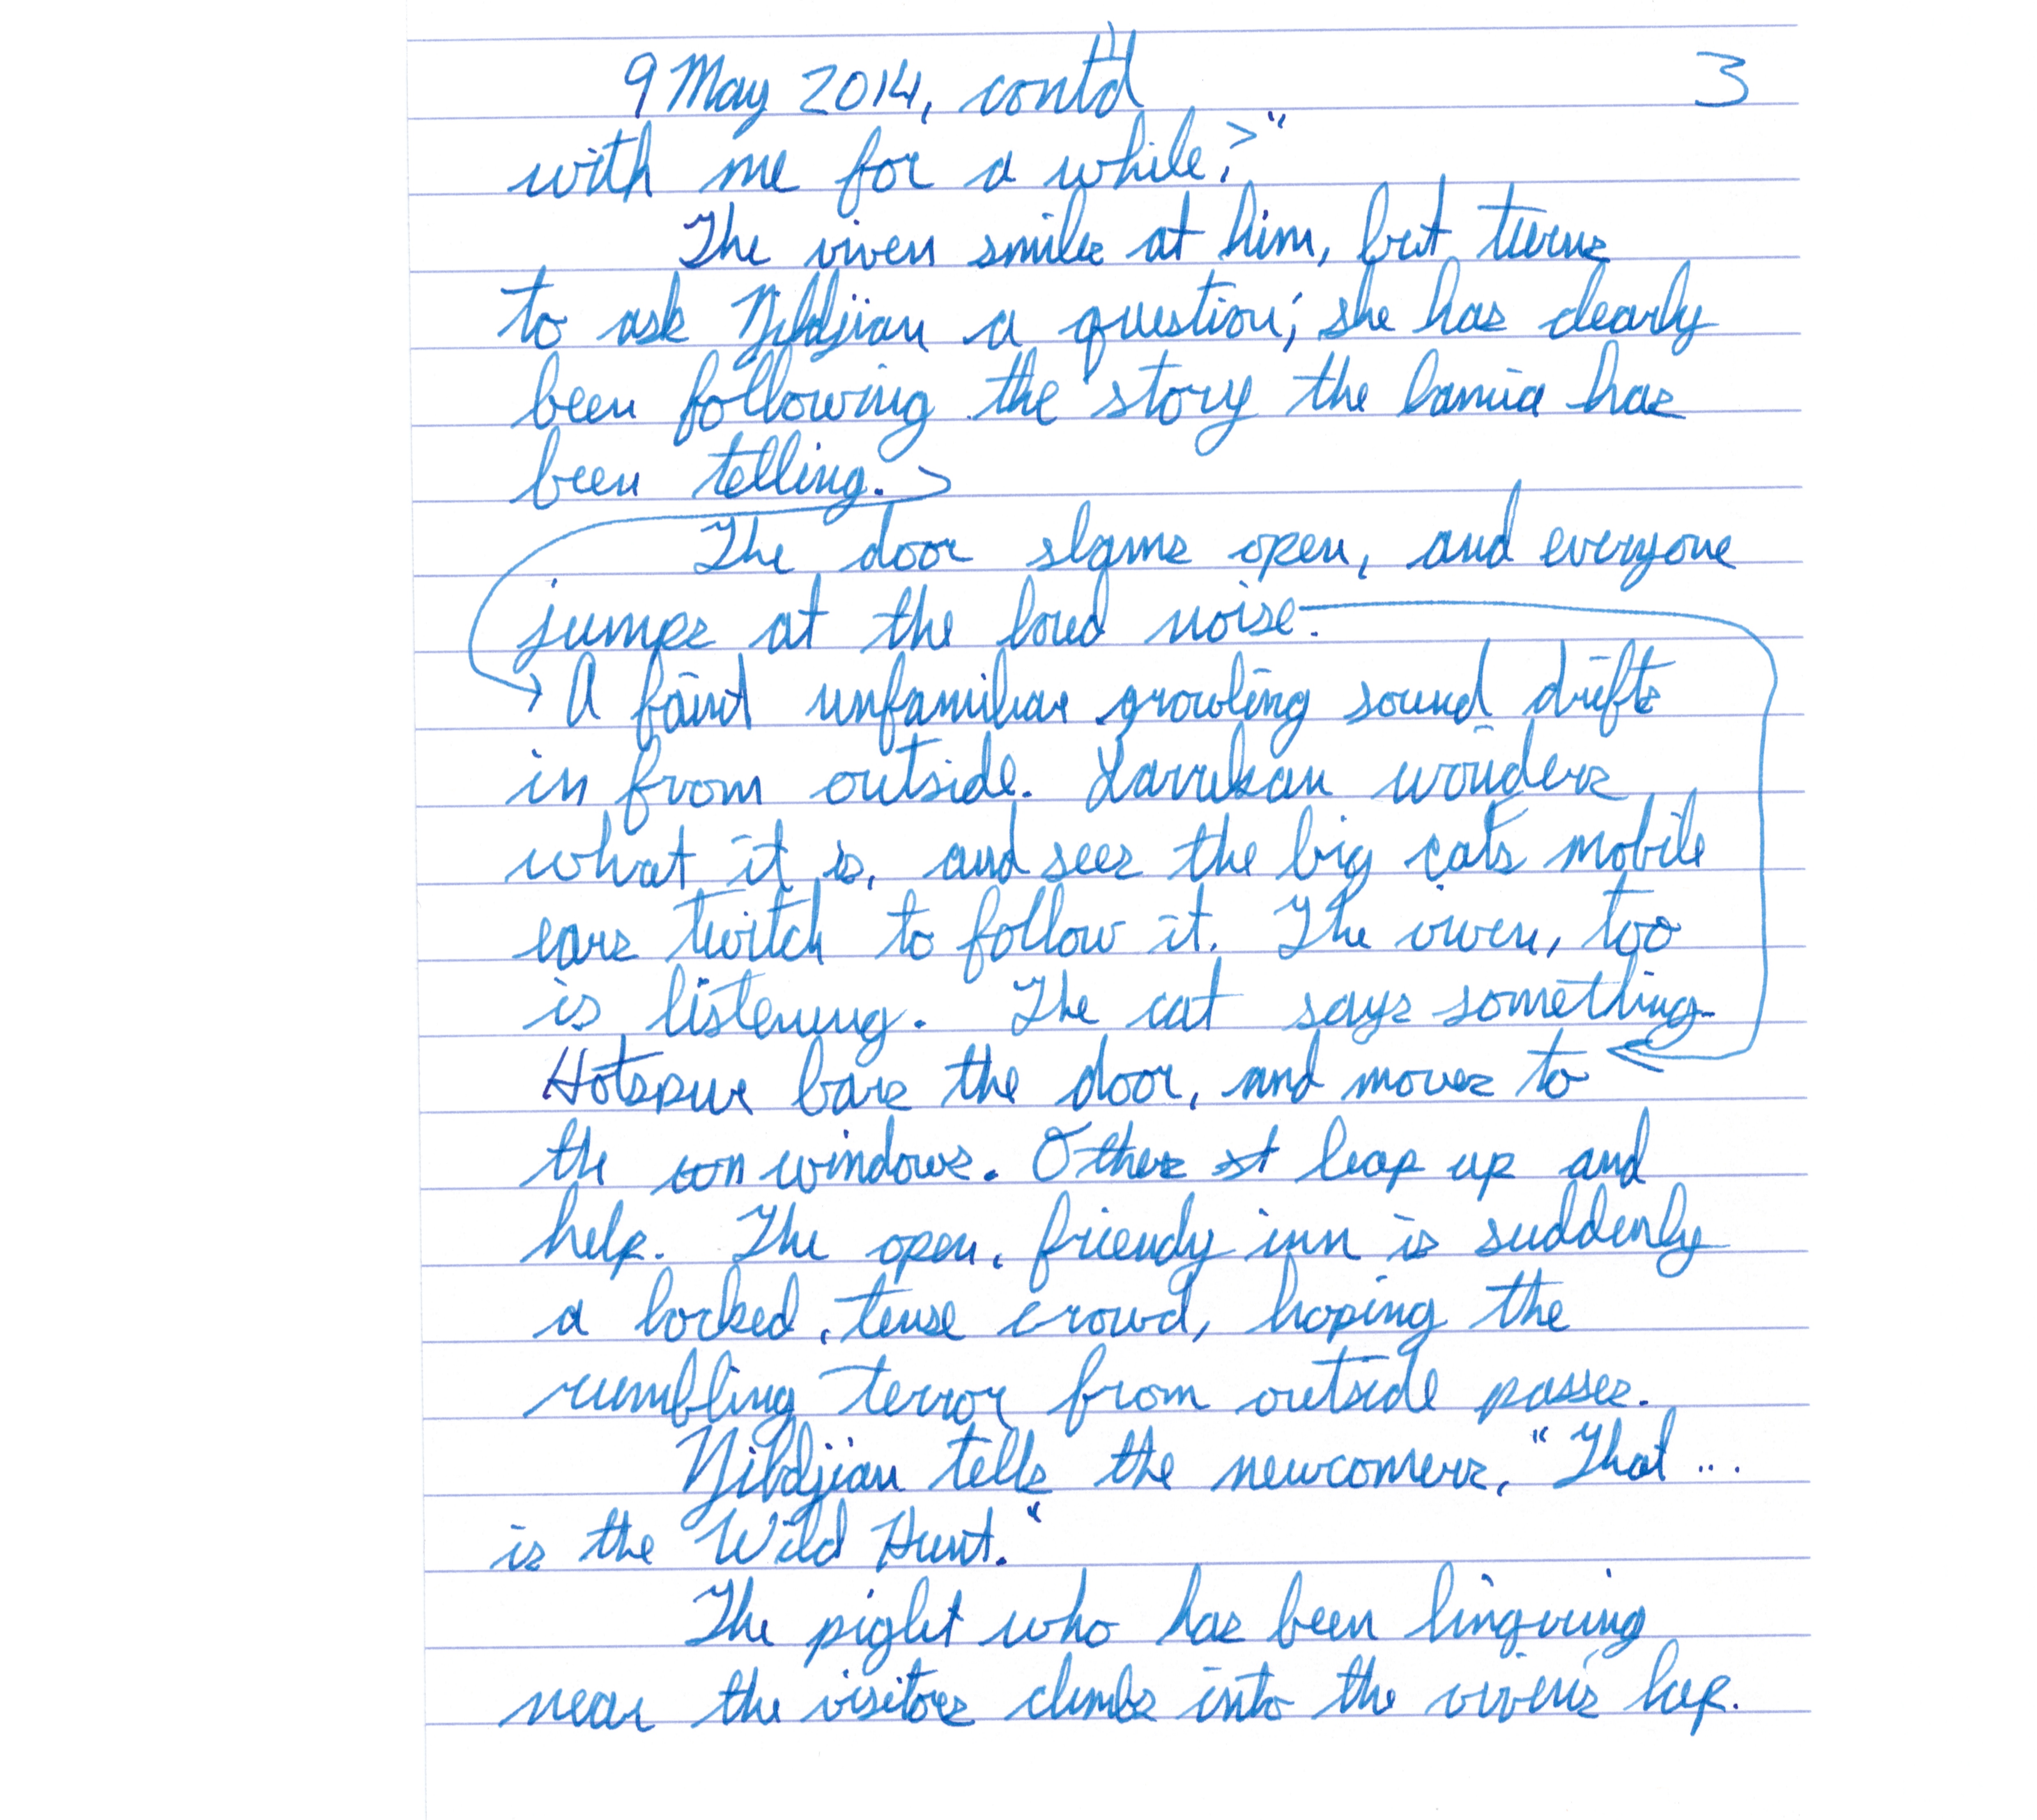 9 May 2014, cont'd 3
with me for a while?>"
The viven smiles at him, but turns
to ask Nildjian a question; she has clearly
been following the story the lamia has
been telling.
The door slams open, and everyone
jumps at the loud noise.
A faint unfamiliar growling sound drifts
in from outside. Larrekan wonders
what it is, and sees the big cat's mobile
ears twitch to follow it. The viven, too
is listening. The cat says something-
Hotspur bars the door, and moves to
the win windows. Others st leap up and
help. The open, friendly inn is suddenly
a locked, tense crowd, hoping the
rumbling terror from outside passes.
Nildjian tells the newcomers, "That ...
is the Wild Hunt."
The pight who has been lingering
near the visitors climbs into the viven's lap.